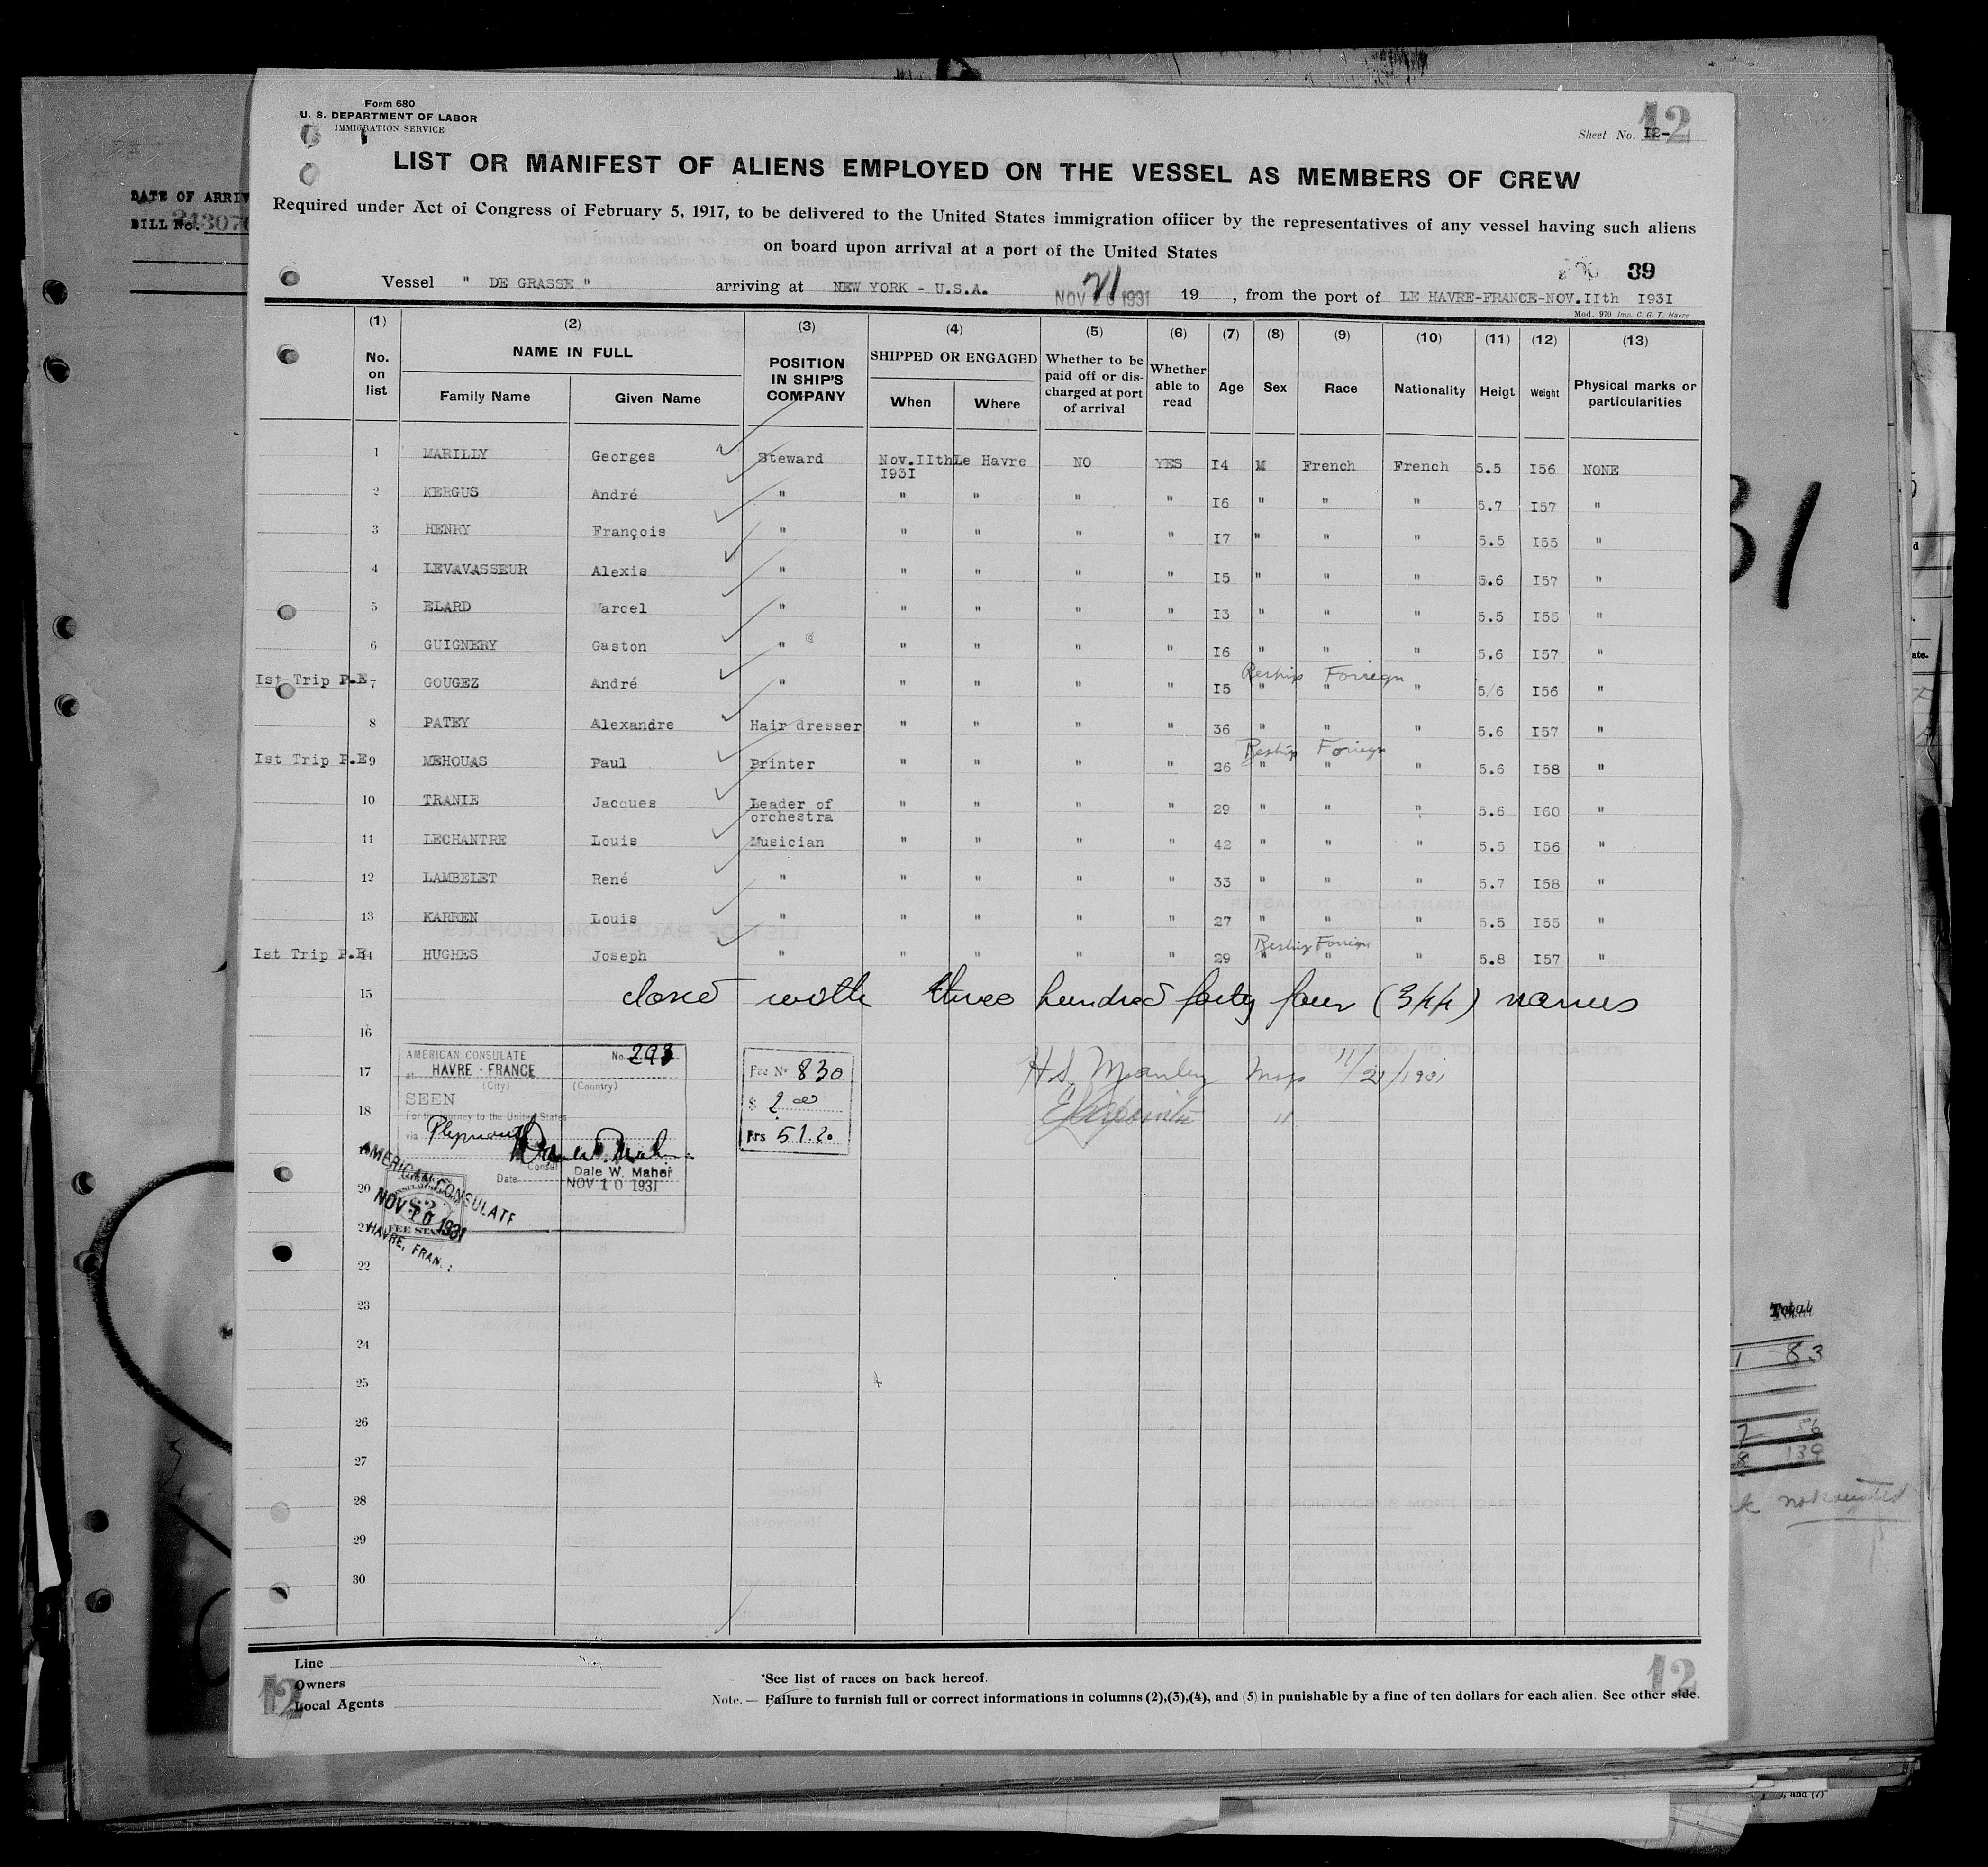 Form 680
U. S. DEPARTMENT OF LABOR
IMMIGRATION SERVICE
12
Sheet No. I2-
LIST OR MANIFEST OF ALIENS EMPLOYED ON THE VESSEL AS MEMBERS OF CREW
Required under Act of Congress of February 5, 1917, to be delivered to the United States immigration officer by the representatives of any vessel having such aliens
on board upon arrival at a port of the United States
39
Vessel " DE GRASSE " arriving at NEW YORK - U.S.A. NOV 21 1931 19 , from the port of LE HAVRE-FRANCE-NOV.IIth I93I
Mod. 970 Imp. C. G. T. Havre
DATE OF ARRIV
BILL No.
(1) (2) (3) (4) (5) (6) (7) (8) (9) (10) (11) (12) (13)
No. on list NAME IN FULL Family Name Given Name POSITION IN SHIP'S COMPANY SHIPPED OR ENGAGED When Where Whether to be paid off or discharged at port of arrival Whether able to read Age Sex Race Nationality Heigt Weight Physical marks or particularities
1 MARILLY Georges Steward Nov.IIth I93I Le Havre NO YES I4 M French French 5.5 I56 NONE
2 KERGUS André " " " " " I6 " " " 5.7 I57 "
3 HENRY François " " " " " I7 " " " 5.5 I55 "
4 LEVAVASSEUR Alexis " " " " " I5 " " " 5.6 I57 "
5 ELARD Marcel " " " " " I3 " " " 5.5 I55 "
6 GUIGNERY Gaston " " " " " I6 " " " 5.6 I57 "
Reship Foriegn
Ist Trip P.E 7 GOUGEZ André " " " " " I5 " " " 5/6 I56 "
8 PATEY Alexandre Hair dresser " " " " 36 " " " 5.6 I57 "
Reship Foriegn
Ist Trip P.E 9 MEHOUAS Paul Printer " " " " 26 " " " 5.6 I58 "
10 TRANIE Jacques Leader of orchestra " " " " 29 " " " 5.6 I60 "
11 LECHANTRE Louis Musician " " " " 42 " " " 5.5 I56 "
12 LAMBELET René " " " " " 33 " " " 5.7 I58 "
13 KARREN Louis " " " " " 27 " " " 5.5 I55 "
Reship Foriegn
Ist Trip P.E 14 HUGHES Joseph " " " " " 29 " " " 5.8 I57 "
15 closed with three hundred forty four (344) names
16
17
18
20
21
22
23
24
25
26
27
28
29
30
AMERICAN CONSULATE No. 293
at HAVRE - FRANCE
(City) (Country)
SEEN
For the journey to the United States
via Plymouth
Consul Dale W. Maher
Date NOV 10 1931
Fee No 830
$ 2.00
Frs 51.20
H.S. Manley Insp 11/21/1931
"
AMERICAN CONSULATE
NOV 10 1931
HAVRE, FRAN
$2
FEE STAMP
Total
1 83
7 56
8 139
not
31
Line
Owners
Local Agents
12
*See list of races on back hereof.
Note. — Failure to furnish full or correct informations in columns (2),(3),(4), and (5) in punishable by a fine of ten dollars for each alien. See other side.
12
, and (7)